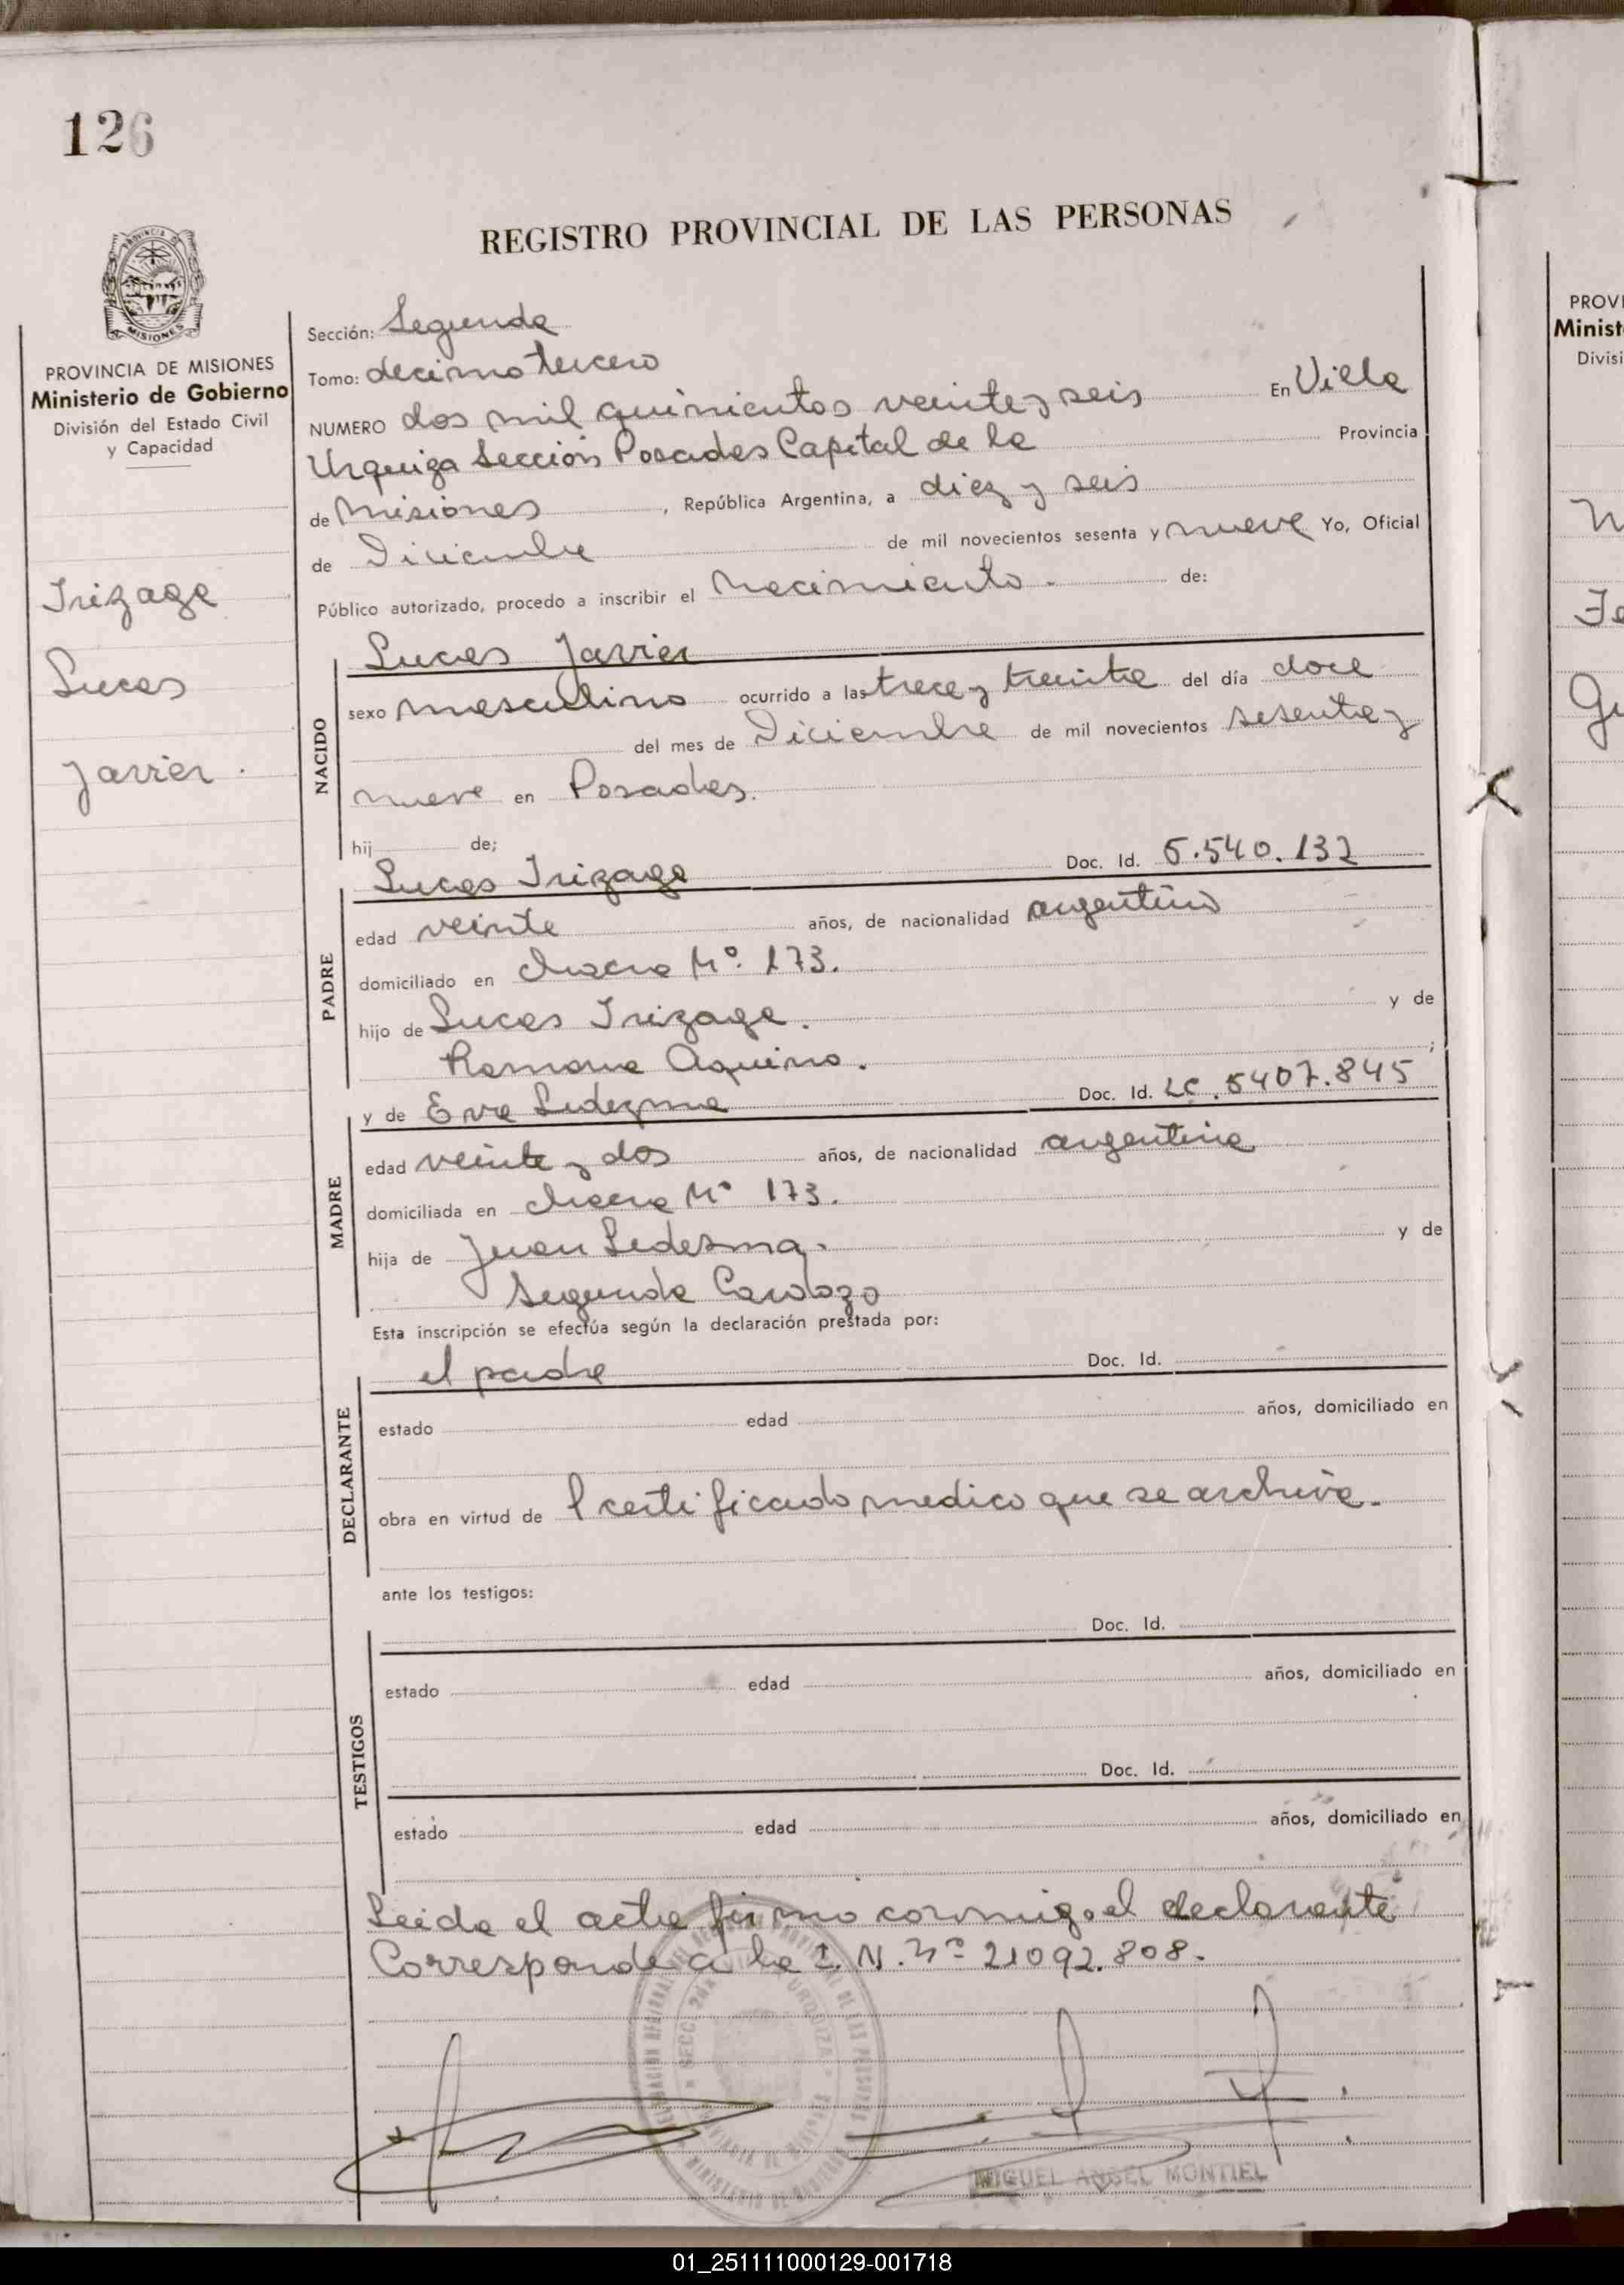 126
REGISTRO PROVINCIAL DE LAS PERSONAS
MISIONES
PROVINCIA DE MISIONES
Ministerio de Gobierno
División del Estado Civil
y Capacidad
Irizaga
Lucas
Javier.
Sección: Segunda
Tomo: decimo tercero
NUMERO dos mil quinientos veinte y seis En Villa
Urquiza Sección Posadas Capital de la Provincia
de Misiones, República Argentina, a diez y seis
de Diciembre de mil novecientos sesenta y nueve Yo, Oficial
Público autorizado, procedo a inscribir el nacimiento. de:
Lucas Javier
NACIDO
sexo masculino ocurrido a las trece y treinta del día doce
del mes de Diciembre de mil novecientos sesenta y
nueve en Posadas.
hij de;
PADRE
Lucas Irizaga Doc. Id. 5.540.132
edad veinte años, de nacionalidad argentino
domiciliado en chacra Nº. 173.
hijo de Lucas Irizaga. y de
Ramona Aquino. ;
MADRE
y de Eva Ledezma Doc. Id. LC. 5407.845
edad veinte y dos años, de nacionalidad argentina
domiciliada en chacra Nº 173.
hija de Juan Ledesma. y de
Segunda Cardozo
Esta inscripción se efectúa según la declaración prestada por:
DECLARANTE
el padre Doc. Id.
estado edad años, domiciliado en
obra en virtud de l certificado medico que se archiva.
ante los testigos:
TESTIGOS
Doc. Id.
estado edad años, domiciliado en
Doc. Id.
estado edad años, domiciliado en
Leida el acta firmo conmigo el declarante
Corresponde a la L. N. Nº 21092.808.
MIGUEL ANGEL MONTIEL
PROVI
Minist
Divisi
01_251111000129-001718